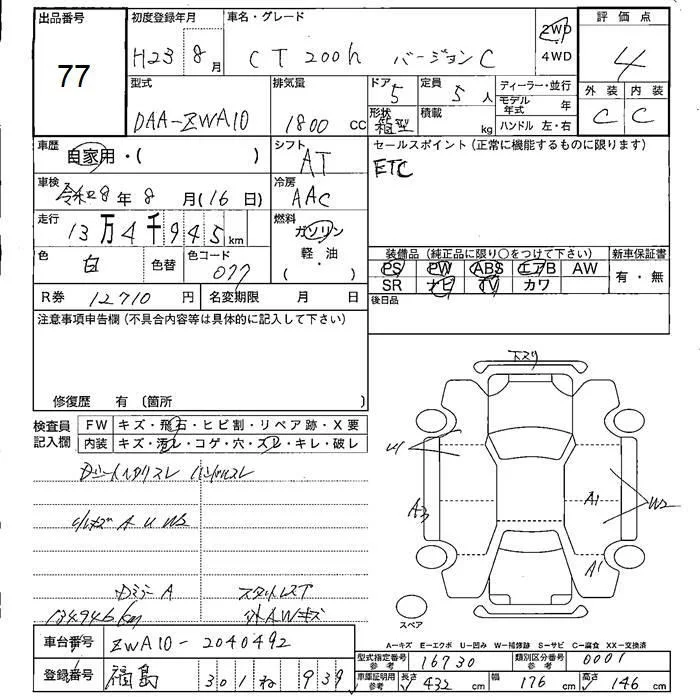 出品番号 初度登録年月 車名・グレード 評価点
77 H23 8月 CT 200h バージョンC 2WD 4WD 4
型式 排気量 ドア 定員 ディーラー・並行 外装 内装
DAA-ZWA10 1800 cc 5 5人 モデル年式 年 C C
形状 箱型 積載 kg ハンドル 左・右
車歴 自家用・( ) シフト AT セールスポイント(正常に機能するものに限ります)
ETC
車検 令和8年8月(16日) 冷房 AAC
走行 13万4千945km 燃料 ガソリン 軽・油 ( )
色 白 色替 色コード 077
装備品(純正品に限り○をつけて下さい) 新車保証書
PS PW ABS エアB AW 有・無
SR ナビ TV カワ
R券 12710円 名変期限 月 日 後日品
注意事項申告欄(不具合内容等は具体的に記入して下さい)
修復歴 有 〔箇所 〕
検査員記入欄 FW キズ・飛石・ヒビ割・リペア跡・X要
内装 キズ・汚レ・コゲ・穴・スレ・キレ・破レ
ハンドルスレ
A U W2
A
134946km 外AWキズ
下スリ
U
A3
A1
W2
A1
スペア
A−キズ E−エクボ U−凹み W−補修跡 S−サビ C−腐食 XX−交換済
車台番号 ZWA10-2040492
型式指定番号 参考 16730 類別区分番号 参考 0001
登録番号 福島 301 ね 939
車庫証明用 参考 長さ 432cm 幅 176cm 高さ 146cm